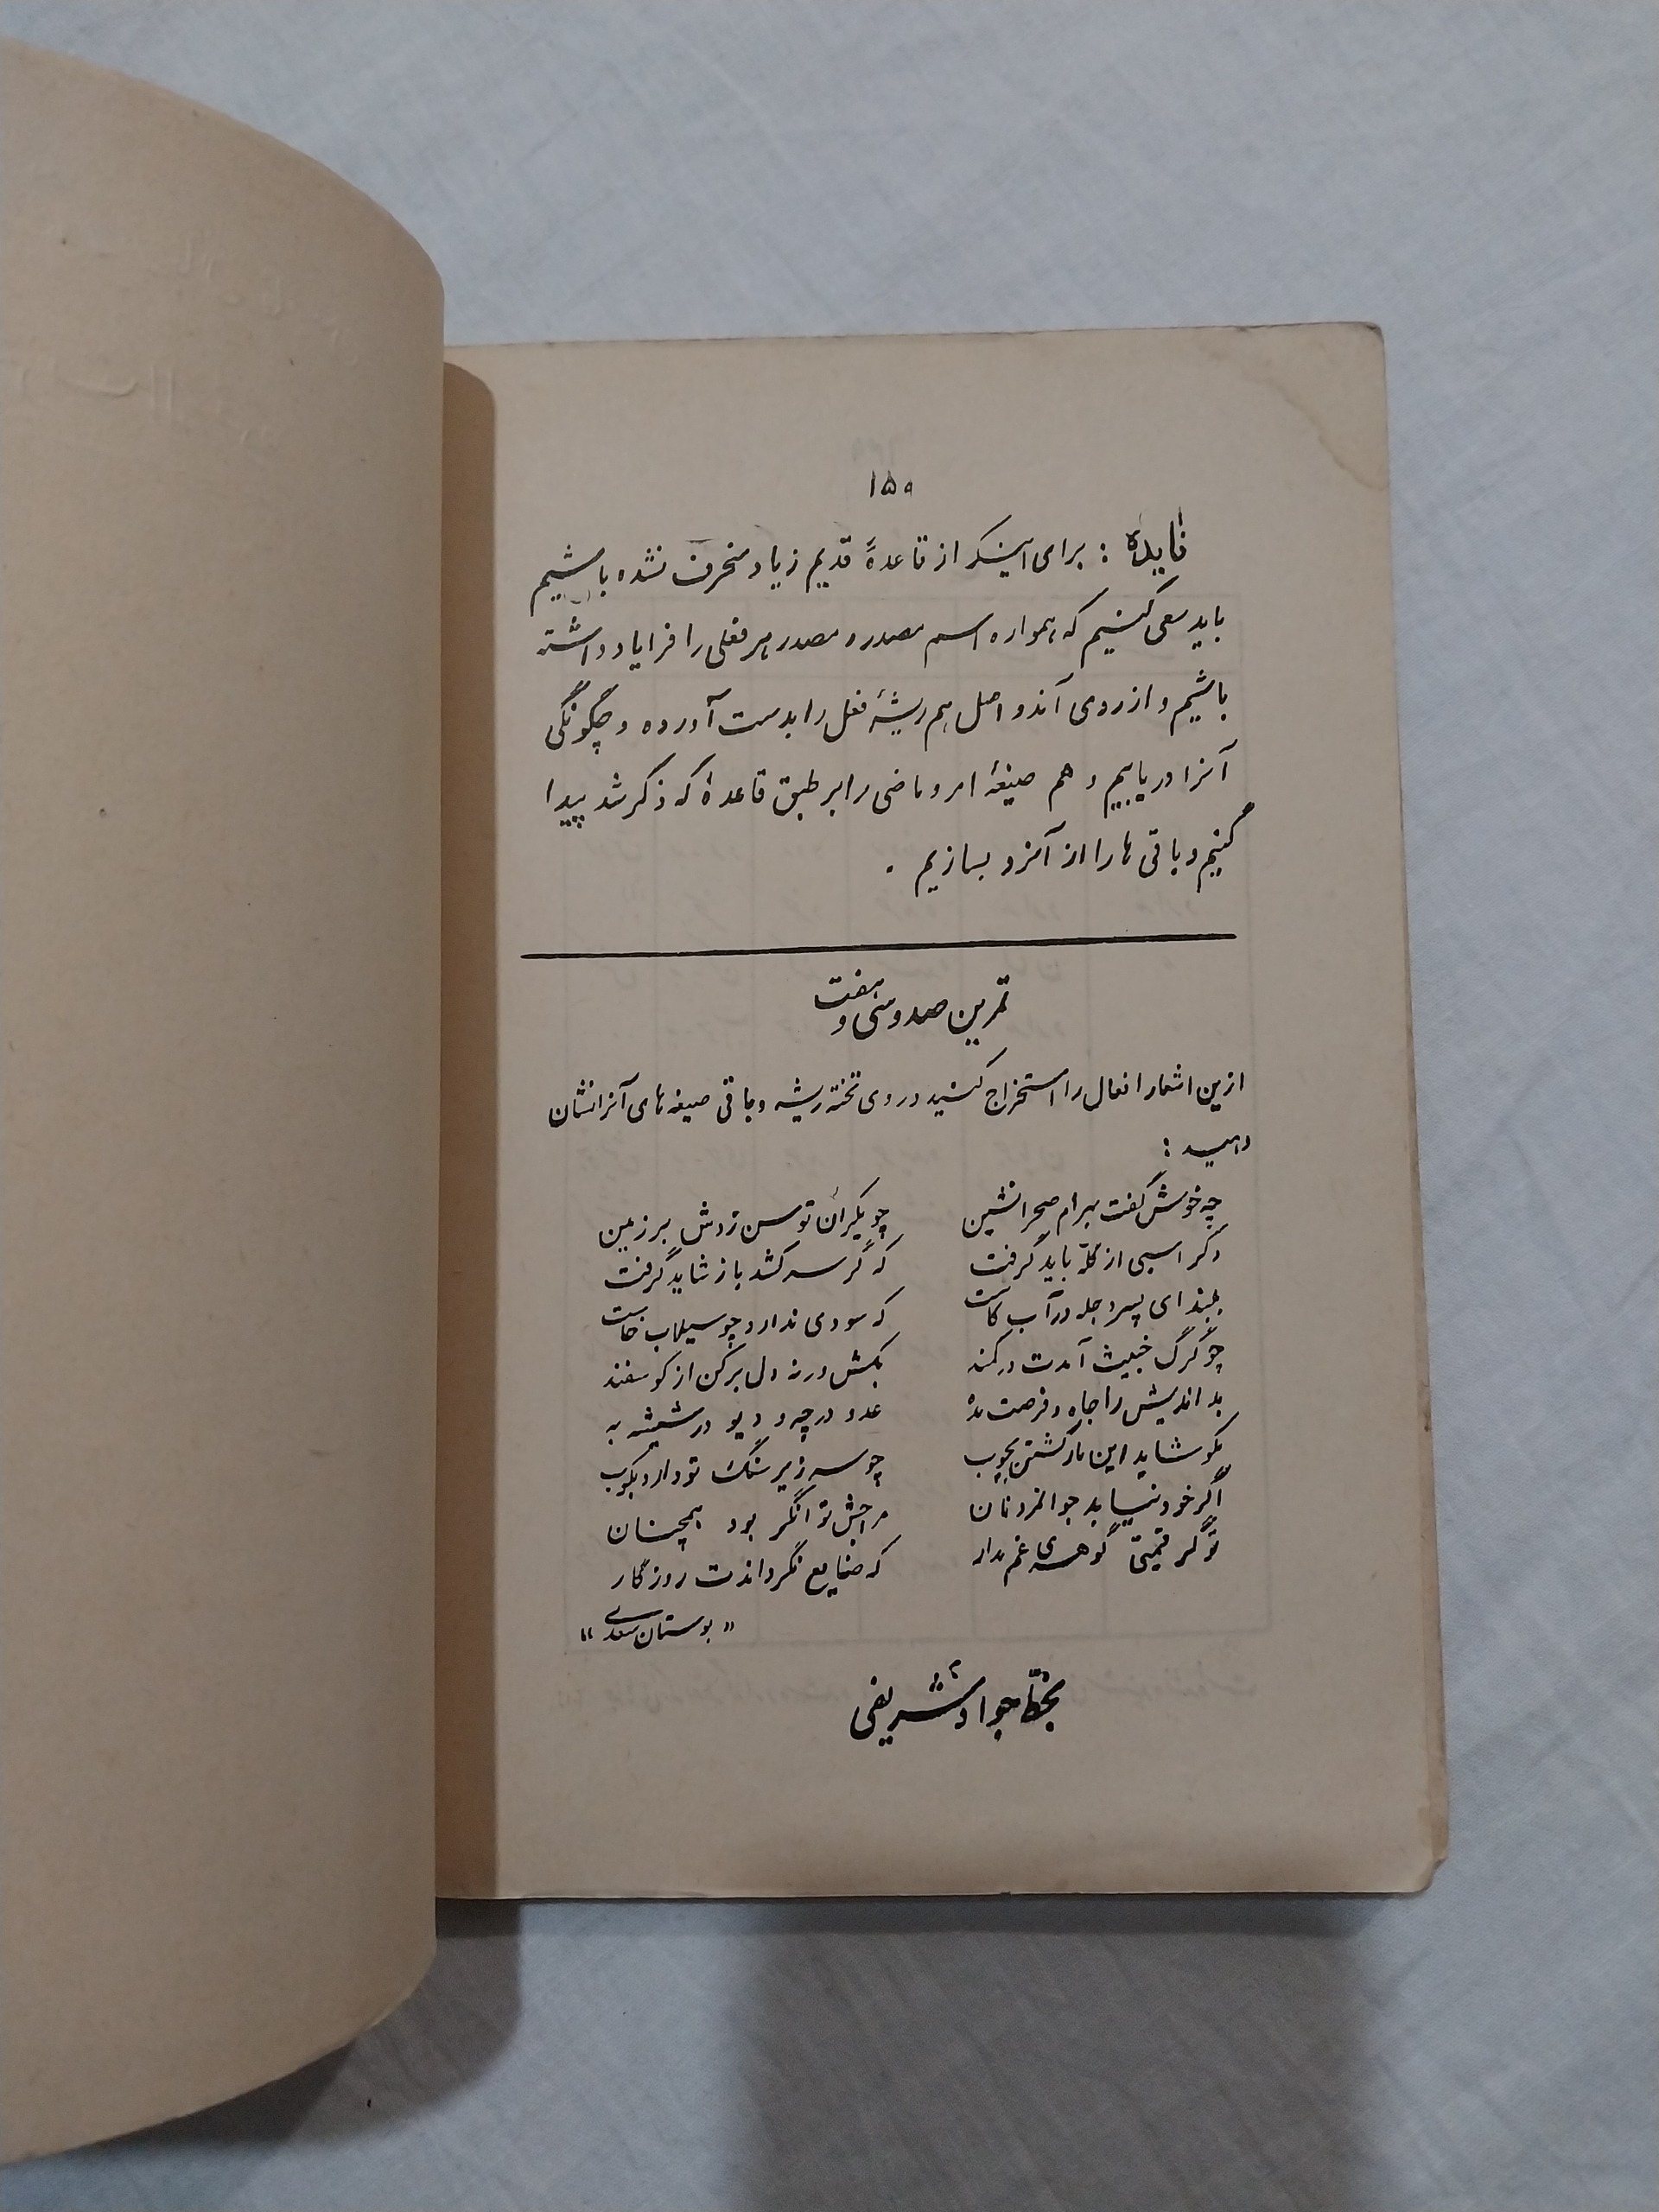 ۱۵۰
فایده : برای اینکه از قاعدهٔ قدیم زیاد منحرف نشده باشیم
باید سعی کنیم که همواره اسم مصدر و مصدر هر فعلی را فرایاد داشته
باشیم و از روی آندو اصل هم ریشهٔ فعل را بدست آورده و چگونگی
آنرا دریابیم و هم صیغهٔ امر و ماضی را بر طبق قاعدهٔ که ذکر شد پیدا
کنیم و باقی ها را از آنرو بسازیم .
تمرین صد و سی و هفت
ازین اشعار افعال را استخراج کنید و روی تخته ریشه و باقی صیغه های آنرا نشان
دهید :
چه خوش گفت بهرام صحرا نشین چو یکران توسن زدش بر زمین
دگر اسبی از گله باید گرفت که گر سر کشد باز شاید گرفت
ببند ای پسر دجله در آب کاست که سودی ندارد چو سیلاب خاست
چو گرگ خبیث آمدت در کمند بکش ورنه دل بر کن از گوسفند
بد اندیش را جاه و فرصت مده عدو در چه و دیو در شیشه به
مگو شاید این مار کشتن بچوب چو سر زیر سنگ تو دارد بکوب
اگر خود نیابد جوانمرد نان مزاجش توانگر بود همچنان
تو گر قیمتی گوهری غم مدار که ضایع نگرداندت روزگار
« بوستان سعدی »
بخط جواد شریفی